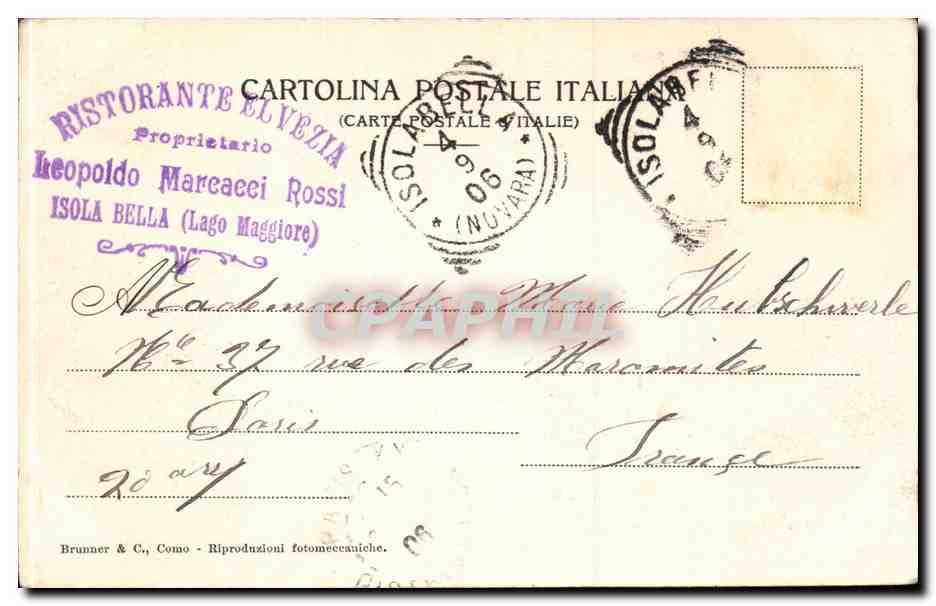 CARTOLINA POSTALE ITALIANA
(CARTE POSTALE D'ITALIE)
RISTORANTE ELVEZIA
Proprietario
Leopoldo Marcacci Rossi
ISOLA BELLA (Lago Maggiore)
ISOLABELLA
4
9
06
* (NOVARA) *
ISOLABEL
4
9
Mademoiselle Marie Hubschwerle
CPAPHIL
No 37 rue des Maronites
Paris
France
20 arr
15
06
Brunner & C., Como - Riproduzioni fotomeccaniche.